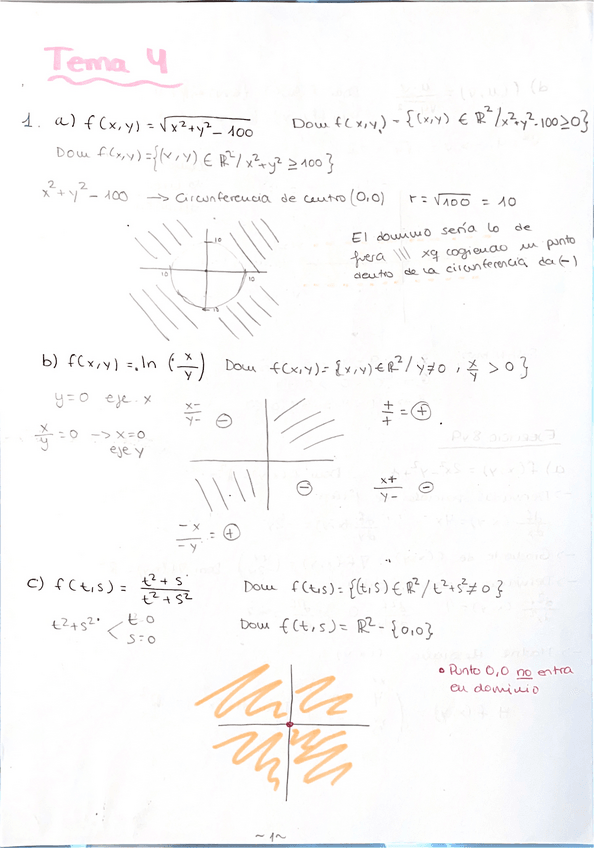 Tema 4
1. a) f(x,y) = √x²+y²-100 Dom f(x,y) = {(x,y) ∈ ℝ²/x²+y²-100≥0}
Dom f(x,y)={(x,y) ∈ ℝ²/ x²+y² ≥100}
x²+y²-100 → Circunferencia de centro (0,0) r=√100 = 10
El dominio sería lo de
fuera \\\ xq cogiendo un punto
dentro de la circunferencia da (-)
10
10
10
10
b) f(x,y) = ln (x/y) Dom f(x,y)={x,y)∈ℝ²/ y≠0, x/y > 0}
y=0 eje x
x-/y- ⊖
+/+ = ⊕
x/y = 0 → x=0
eje y
⊖
x+/y- ⊖
-x/-y = ⊕
c) f(t,s) = t²+s/t²+s² Dom f(t,s)={(t,s)∈ℝ²/t²+s²≠0}
t²+s² < t=0
s=0
Dom f(t,s)= ℝ²-{0,0}
• Punto 0,0 no entra
en dominio
~1~